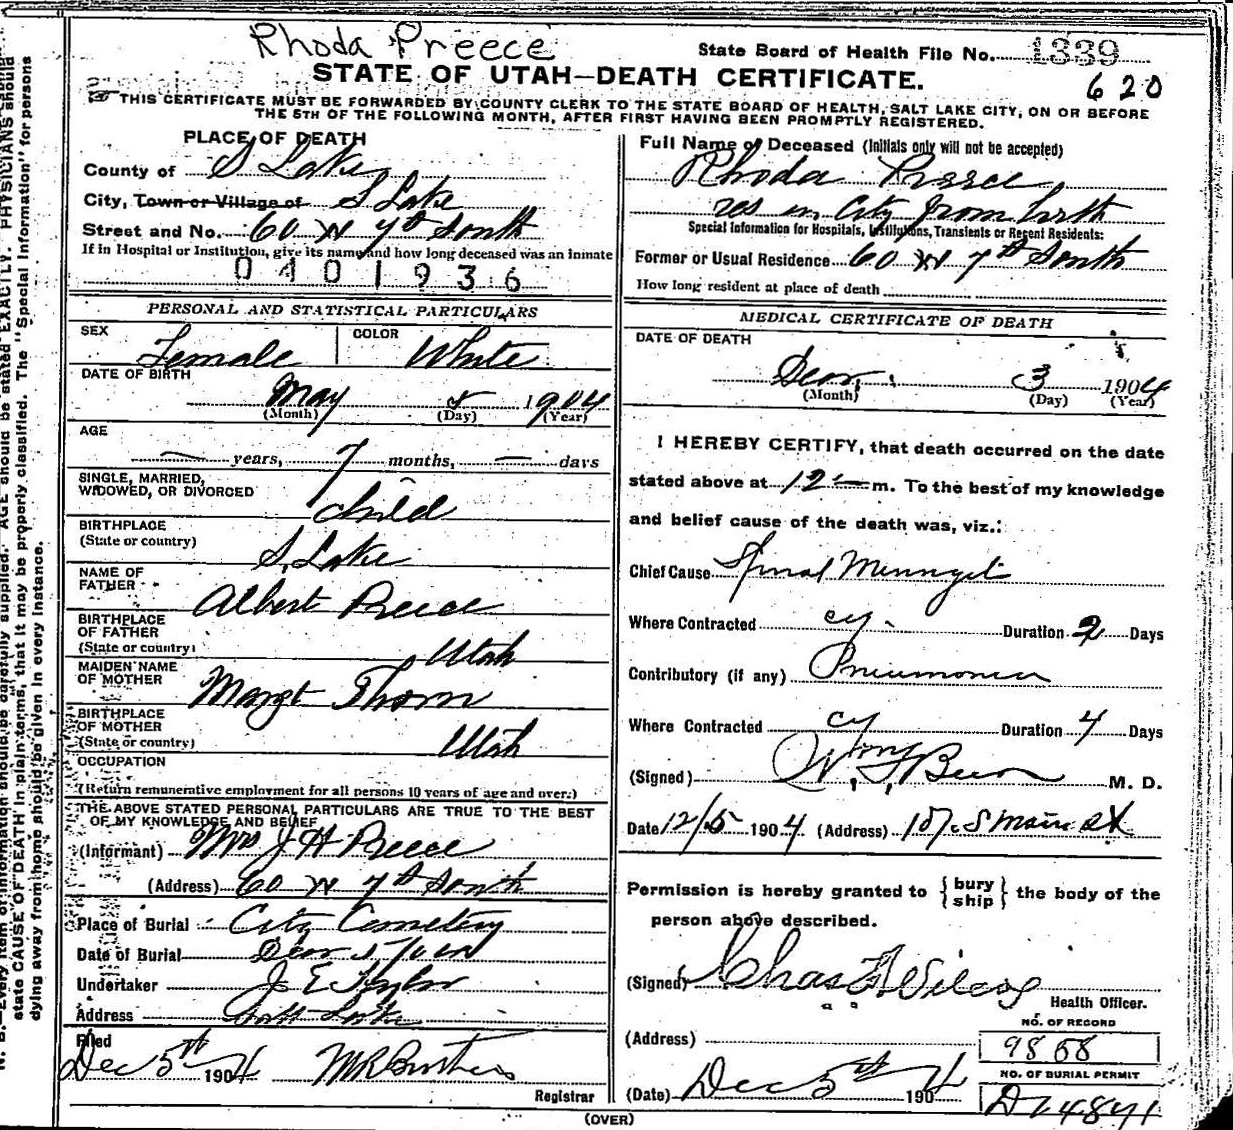 Rhoda Preece
State Board of Health File No. 1339
STATE OF UTAH—DEATH CERTIFICATE.
620
THIS CERTIFICATE MUST BE FORWARDED BY COUNTY CLERK TO THE STATE BOARD OF HEALTH, SALT LAKE CITY, ON OR BEFORE
THE 5TH OF THE FOLLOWING MONTH, AFTER FIRST HAVING BEEN PROMPTLY REGISTERED.
PLACE OF DEATH
County of S Lake
City, Town or Village of S Lake
Street and No. 60 W 7th South
If in Hospital or Institution, give its name and how long deceased was an inmate
0401936
PERSONAL AND STATISTICAL PARTICULARS
SEX Female COLOR White
DATE OF BIRTH
May 5 1904
(Month) (Day) (Year)
AGE
— years, 7 months, — days
SINGLE, MARRIED,
WIDOWED, OR DIVORCED
child
BIRTHPLACE
(State or country) S. Lake
NAME OF
FATHER Albert Preece
BIRTHPLACE
OF FATHER
(State or country) Utah
MAIDEN NAME
OF MOTHER Margt Thorn
BIRTHPLACE
OF MOTHER
(State or country) Utah
OCCUPATION
(Return remunerative employment for all persons 10 years of age and over.)
THE ABOVE STATED PERSONAL PARTICULARS ARE TRUE TO THE BEST
OF MY KNOWLEDGE AND BELIEF
(Informant) Mrs J H Preece
(Address) 60 W 7th South
Place of Burial City Cemetery
Date of Burial Decr 5 / 04
Undertaker J. E. Taylor
Address Salt Lake
Filed
Dec 5th 1904
Registrar
Full Name of Deceased (Initials only will not be accepted)
Rhoda Preece
res in City from birth
Special Information for Hospitals, Institutions, Transients or Recent Residents:
Former or Usual Residence 60 W 7th South
How long resident at place of death
MEDICAL CERTIFICATE OF DEATH
DATE OF DEATH
Decr 3 1904
(Month) (Day) (Year)
I HEREBY CERTIFY, that death occurred on the date
stated above at 12 m. To the best of my knowledge
and belief cause of the death was, viz.:
Chief Cause Spinal Menngit
Where Contracted cy. Duration 2 Days
Contributory (if any) Pneumonia
Where Contracted cy Duration 4 Days
(Signed) M. D.
Date 12/5 1904 (Address) S Main St
Permission is hereby granted to {bury ship} the body of the
person above described.
(Signed) Chas Wilcox
Health Officer.
(Address)
(Date) Dec 5th 1904
NO. OF RECORD
9858
NO. OF BURIAL PERMIT
(OVER)
N. B.—Every item of information should be carefully supplied. AGE should be stated EXACTLY. PHYSICIANS should
state CAUSE OF DEATH in plain terms, that it may be properly classified. The "Special Information" for persons
dying away from home should be given in every instance.